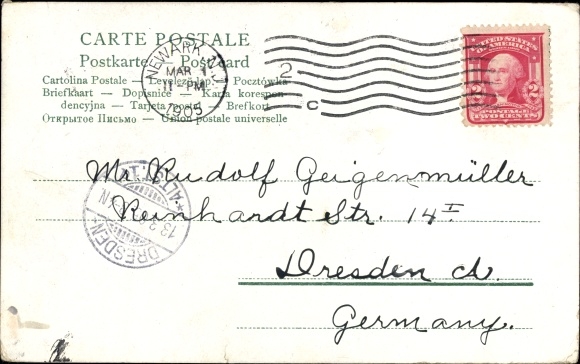 CARTE POSTALE
Postkarte — Postcard
Cartolina Postale — Levelező-Lap — Pocztówka
Briefkaart — Dopisnice — Karta korespon-
dencyjna — Tarjeta Postal — Brefkort
Открытое Письмо — Union postale universelle
NEWARK, N.J.
MAR 1
11-PM
1905
2
C
UNITED STATES
OF AMERICA
2 2
POSTAGE
TWO CENTS
Mr. Rudolf Geigenmüller
Reinhardt Str. 14 I
Dresden a.
Germany.
DRESDEN-ALTST.
13.3.